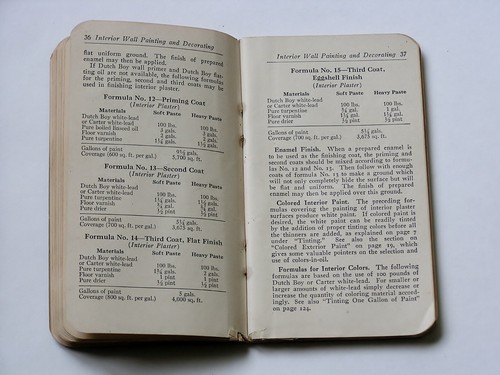 36 Interior Wall Painting and Decorating
flat uniform ground. The finish of prepared
enamel may then be applied.
If Dutch Boy wall primer and Dutch Boy flat-
ting oil are not available, the following formulas
for the priming, second and third coats may be
used in finishing interior plaster.
Formula No. 12—Priming Coat
(Interior Plaster)
Materials Soft Paste Heavy Paste
Dutch Boy white-lead
or Carter white-lead 100 lbs. 100 lbs.
Pure boiled linseed oil 3 gals.
Floor varnish
Pure turpentine
Pure drier
Gallons of paint
Coverage (600 sq. ft. per gal.) 5,700 sq. ft.
Formula No. 13—Second Coat
(Interior Plaster)
Materials Soft Paste Heavy Paste
Dutch Boy white-lead
or Carter white-lead 100 lbs. 100 lbs.
Pure turpentine
Floor varnish
Pure drier
Gallons of paint 5¼ gals.
Coverage (700 sq. ft. per gal.) 3,675 sq. ft.
Formula No. 14—Third Coat, Flat Finish
(Interior Plaster)
Materials Soft Paste Heavy Paste
Dutch Boy white-lead
or Carter white-lead 100 lbs. 100 lbs.
Pure turpentine 2 gals.
Floor varnish 1 pint 1 pint
Pure drier
Gallons of paint 5 gals.
Coverage (800 sq. ft. per gal.) 4,000 sq. ft.
Interior Wall Painting and Decorating 37
Formula No. 15—Third Coat,
Eggshell Finish
(Interior Plaster)
Materials Soft Paste Heavy Paste
Dutch Boy white-lead
or Carter white-lead 100 lbs. 100 lbs.
Pure turpentine ¾ gal. 1 gal.
Floor varnish 1¼ gals. 1¼ gals.
Pure drier ½ pint ½ pint
Gallons of paint 5¼ gals.
Coverage (700 sq. ft. per gal.) 3,675 sq. ft.
Enamel Finish. When a prepared enamel is
to be used as the finishing coat, the priming and
second coats should be mixed according to formu-
las No. 12 and No. 13. Then follow with enough
coats of formula No. 15 to make a ground which
will not only completely hide the surface but will
be flat and uniform. The finish of prepared
enamel may then be applied over this ground.
Colored Interior Paint. The preceding for-
mulas covering the painting of interior plaster
surfaces produce white paint. If colored paint is
desired, the white paint can be readily tinted
by the addition of proper tinting colors before all
the thinners are added, as explained on page 7
under "Tinting." See also the section on
"Colored Exterior Paint" on page 19, which
gives some valuable pointers on the selection and
use of colors-in-oil.
Formulas for Interior Colors. The following
formulas are based on the use of 100 pounds of
Dutch Boy or Carter white-lead. For smaller or
larger amounts of white-lead simply decrease or
increase the quantity of coloring material accord-
ingly. See also "Tinting One Gallon of Paint"
on page 124.